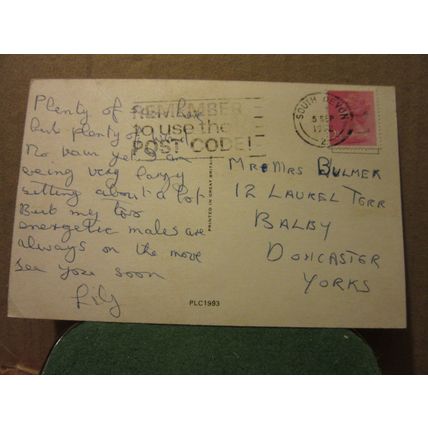 Plenty of sun here
but plenty of wind
No rain yet. I am
being very lazy
sitting about a lot
But my two
energetic males are
always on the move
See you soon
Lily
REMEMBER
to use the
POST CODE!
SOUTH DEVON
5 SEP
PRINTED IN GREAT BRITAIN
MR & MRS BULMER
12 LAUREL TERR
BALBY
DONCASTER
YORKS
PLC1993